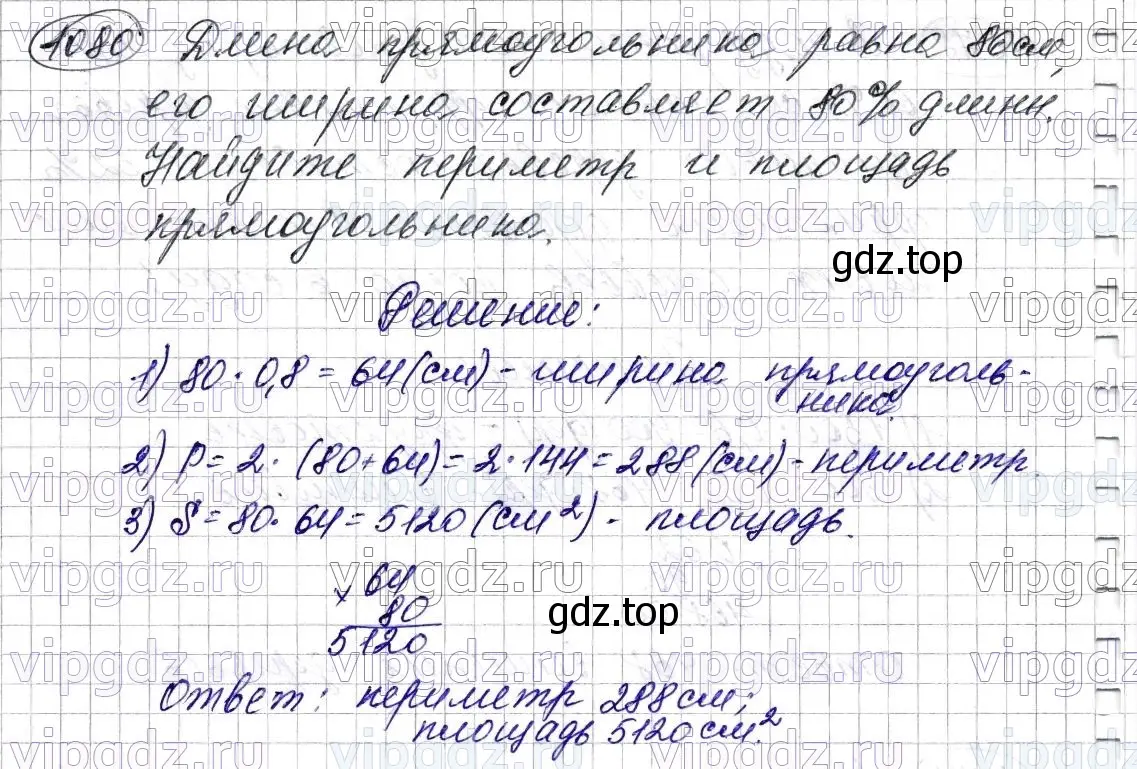 1080 Длина прямоугольника равна 80 см,
его ширина составляет 80% длины.
Найдите периметр и площадь
прямоугольника.
gdz.top
Решение:
1) 80 · 0,8 = 64 (см) - ширина прямоуголь-
ника.
2) P = 2 · (80 + 64) = 2 · 144 = 288 (см) - периметр.
3) S = 80 · 64 = 5120 (см²) - площадь.
× 64
80
gdz.top
5120
Ответ: периметр 288 см;
площадь 5120 см².